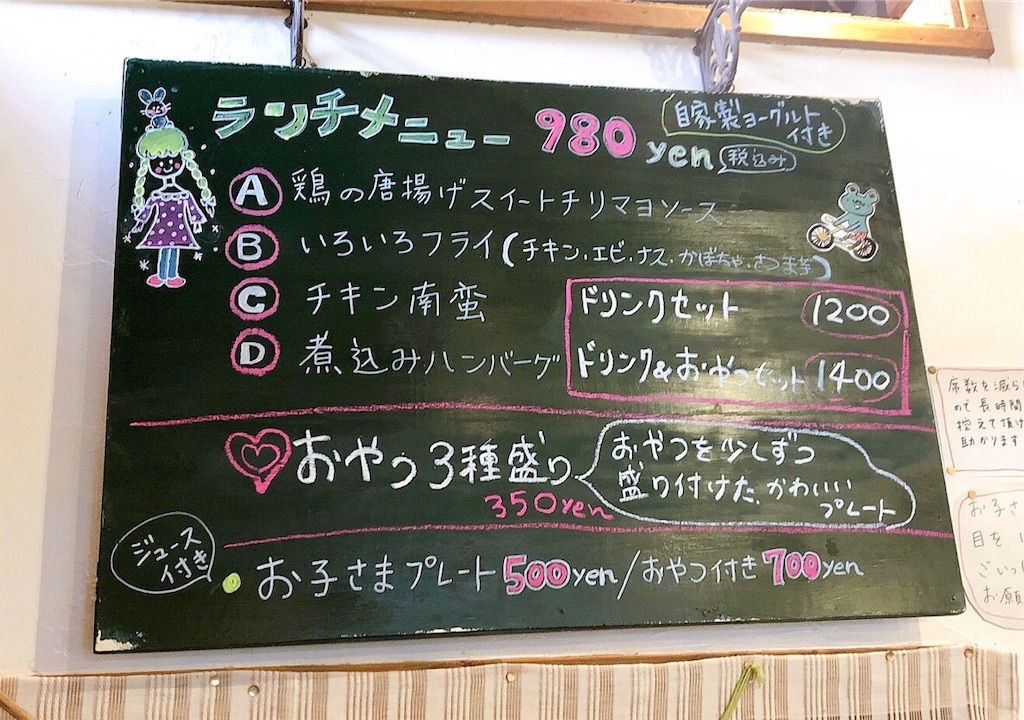 ランチメニュー 980 yen (税込み)
自家製ヨーグルト
付き
A 鶏の唐揚げスイートチリマヨソース
B いろいろフライ(チキン、エビ、ナス、かぼちゃ、さつま芋)
C チキン南蛮
D 煮込みハンバーグ
ドリンクセット 1200
ドリンク&おやつセット 1400
おやつ3種盛り
350yen
おやつを少しずつ
盛り付けた、かわいい
プレート
ジュース
付き
お子さまプレート500yen/おやつ付き700yen
席数を減ら
ので長時間
控えて頂け
助かります
お子さ
目を
ごいっ
お願